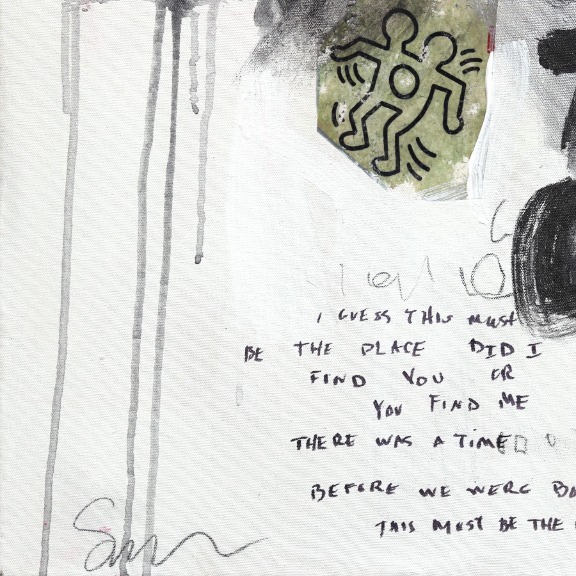 I GUESS THIS MUST
BE THE PLACE DID I
FIND YOU OR
YOU FIND ME
THERE WAS A TIME
BEFORE WE WERE
THIS MUST BE THE